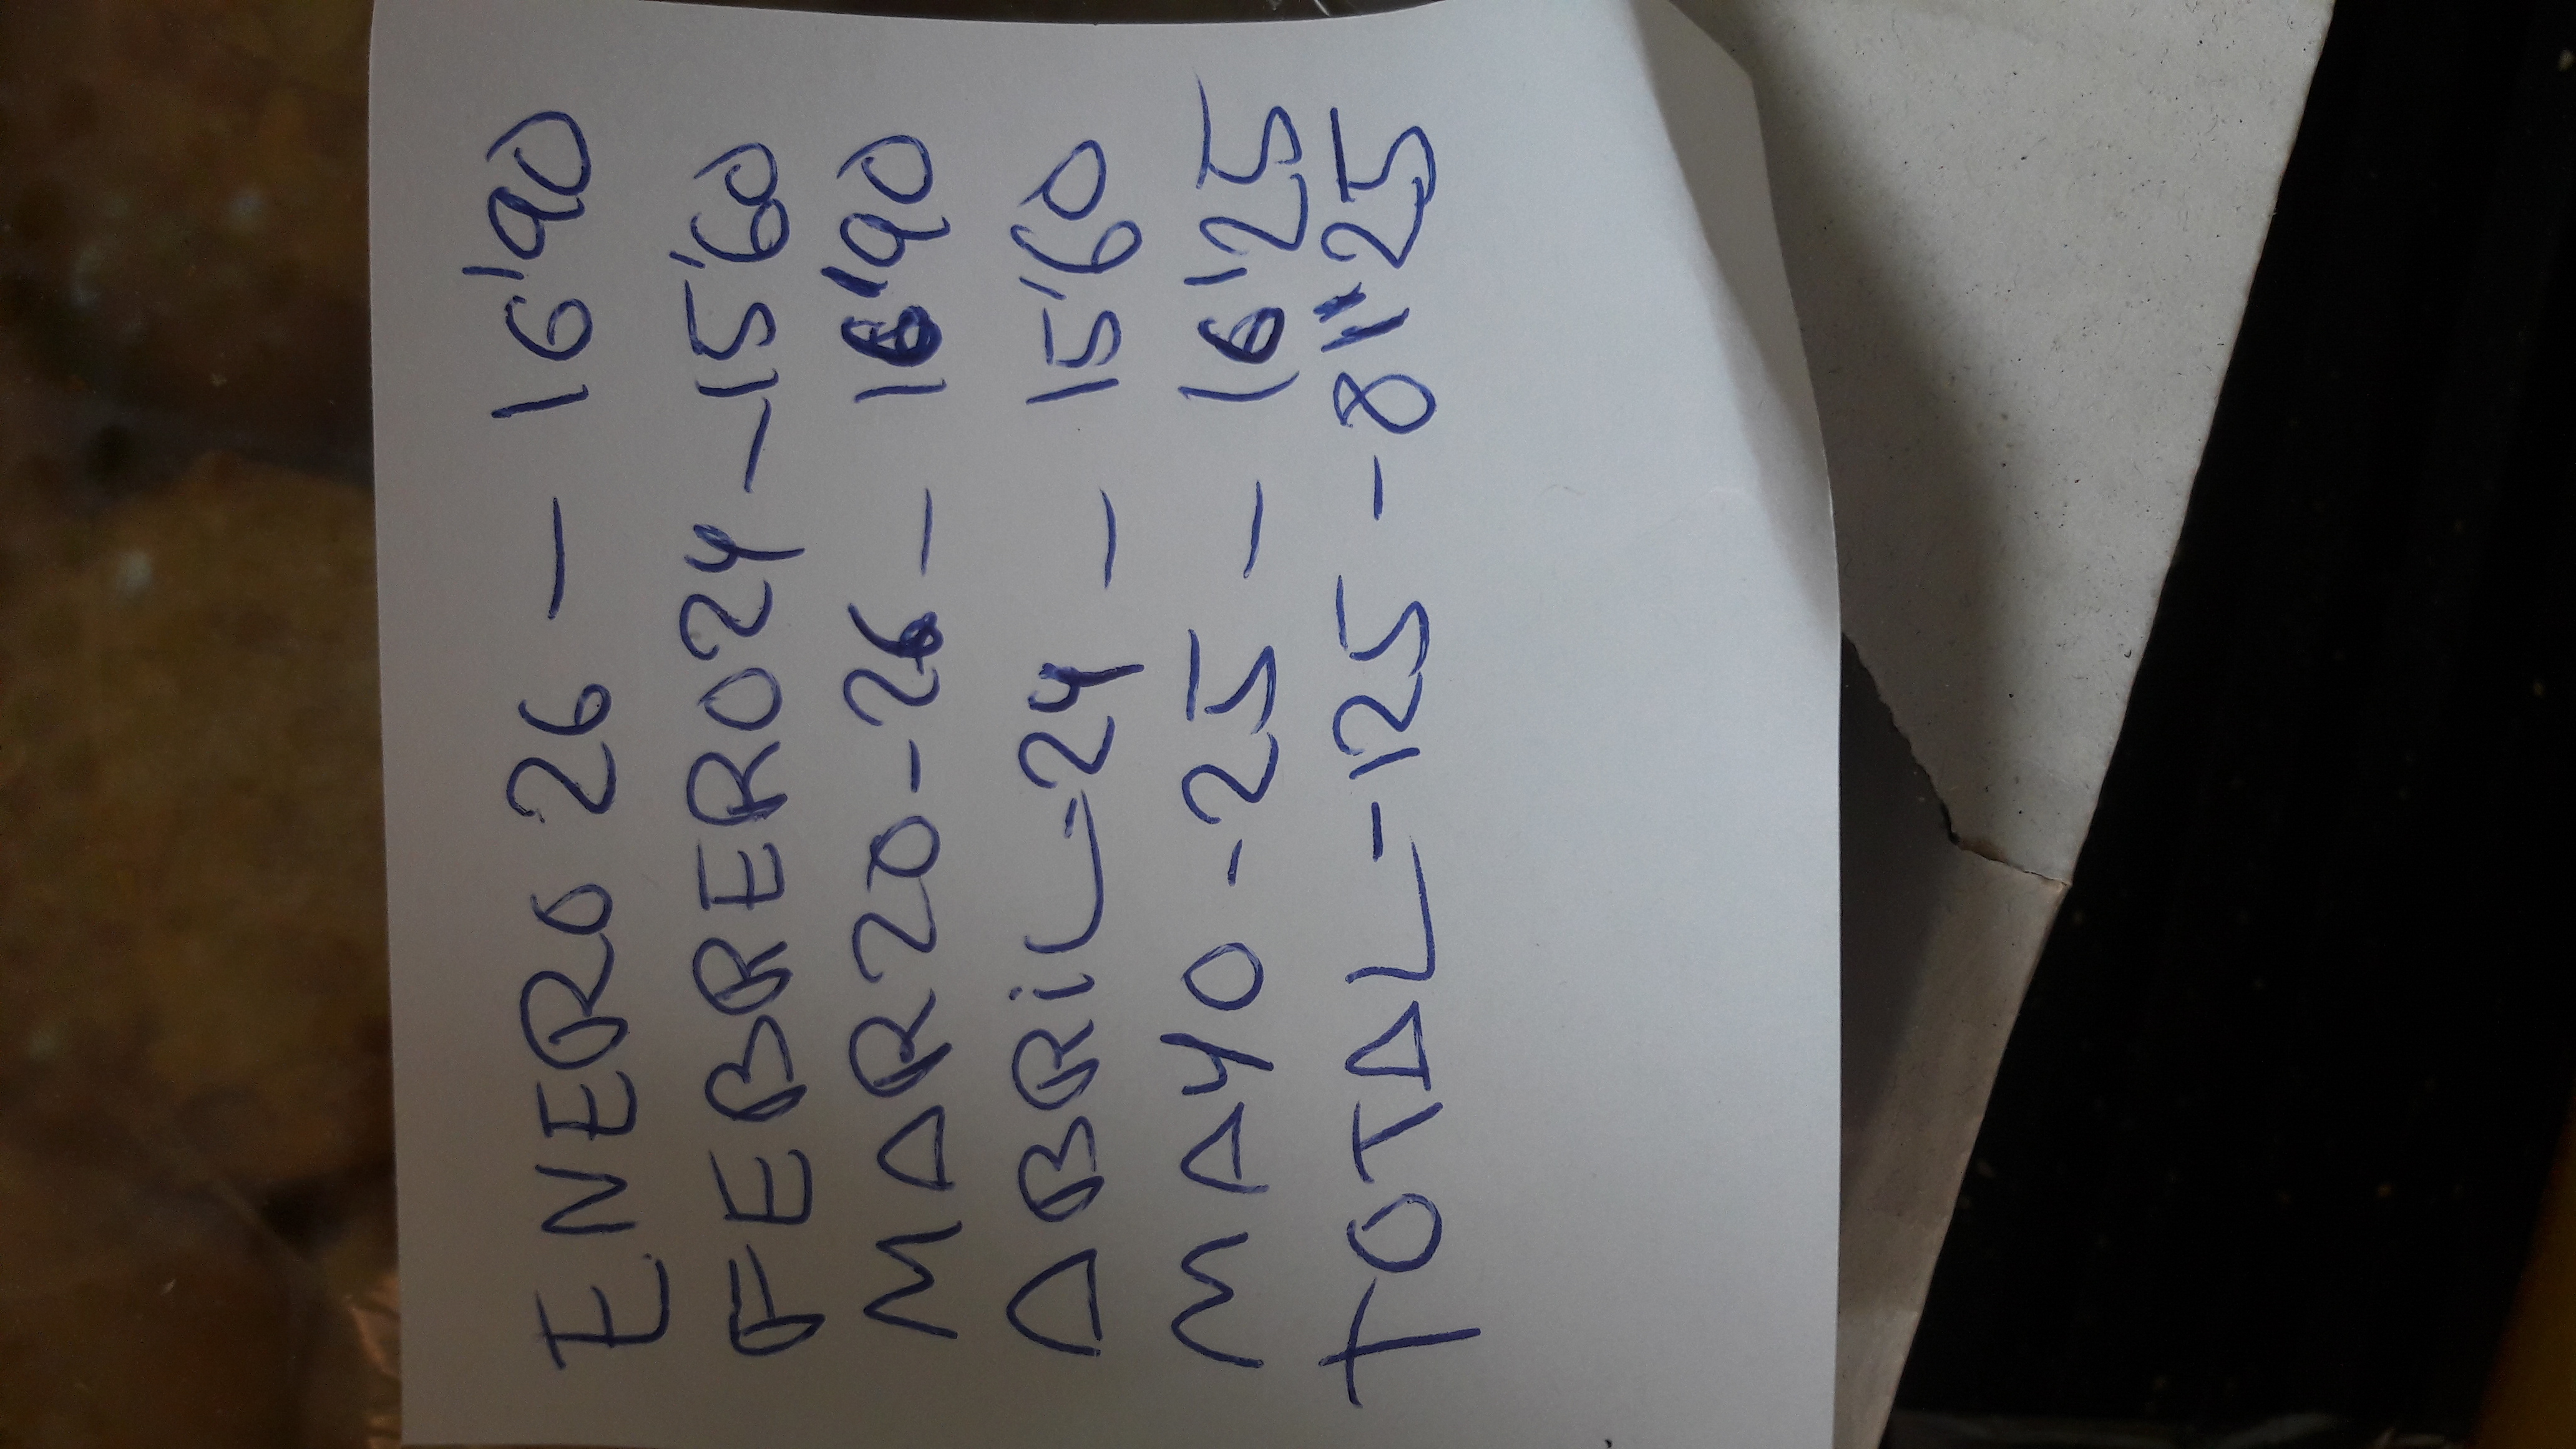 ENERO 26 — 16'90
FEBRERO 24 — 15'60
MARZO - 26 — 16'90
ABRIL - 24 — 15'60
MAYO - 25 — 16'25
TOTAL - 125 - 81'25